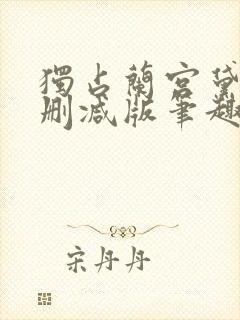 獨占蘭宮黛
刪減版筆趣
宋丹丹